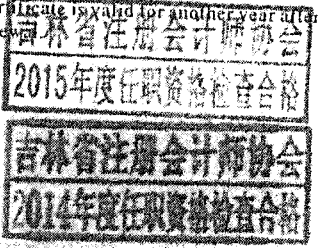 certificate is valid for another year after
吉林省注册会计师协会
2015年度任职资格检查合格
吉林省注册会计师协会
2014年度任职资格检查合格